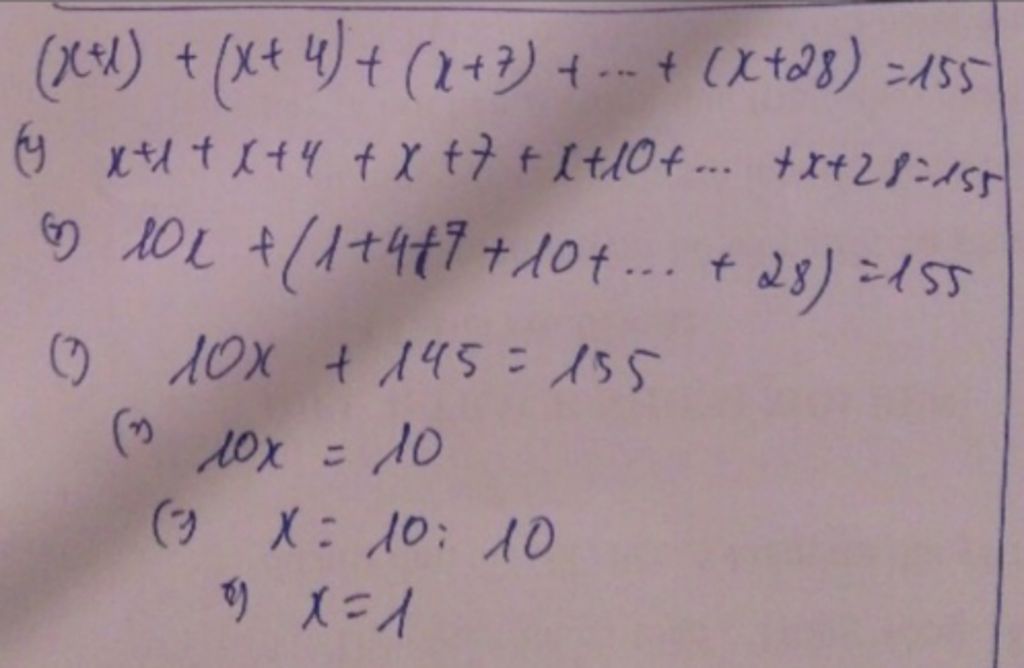 (x+1) + (x+4) + (x+7) + ... + (x+28) = 155
(=) x+1 + x+4 + x+7 + x+10 + ... + x+28 = 155
(=) 10x + (1+4+7+10+ ... + 28) = 155
(=) 10x + 145 = 155
(=) 10x = 10
(=) x = 10 : 10
(=) x = 1